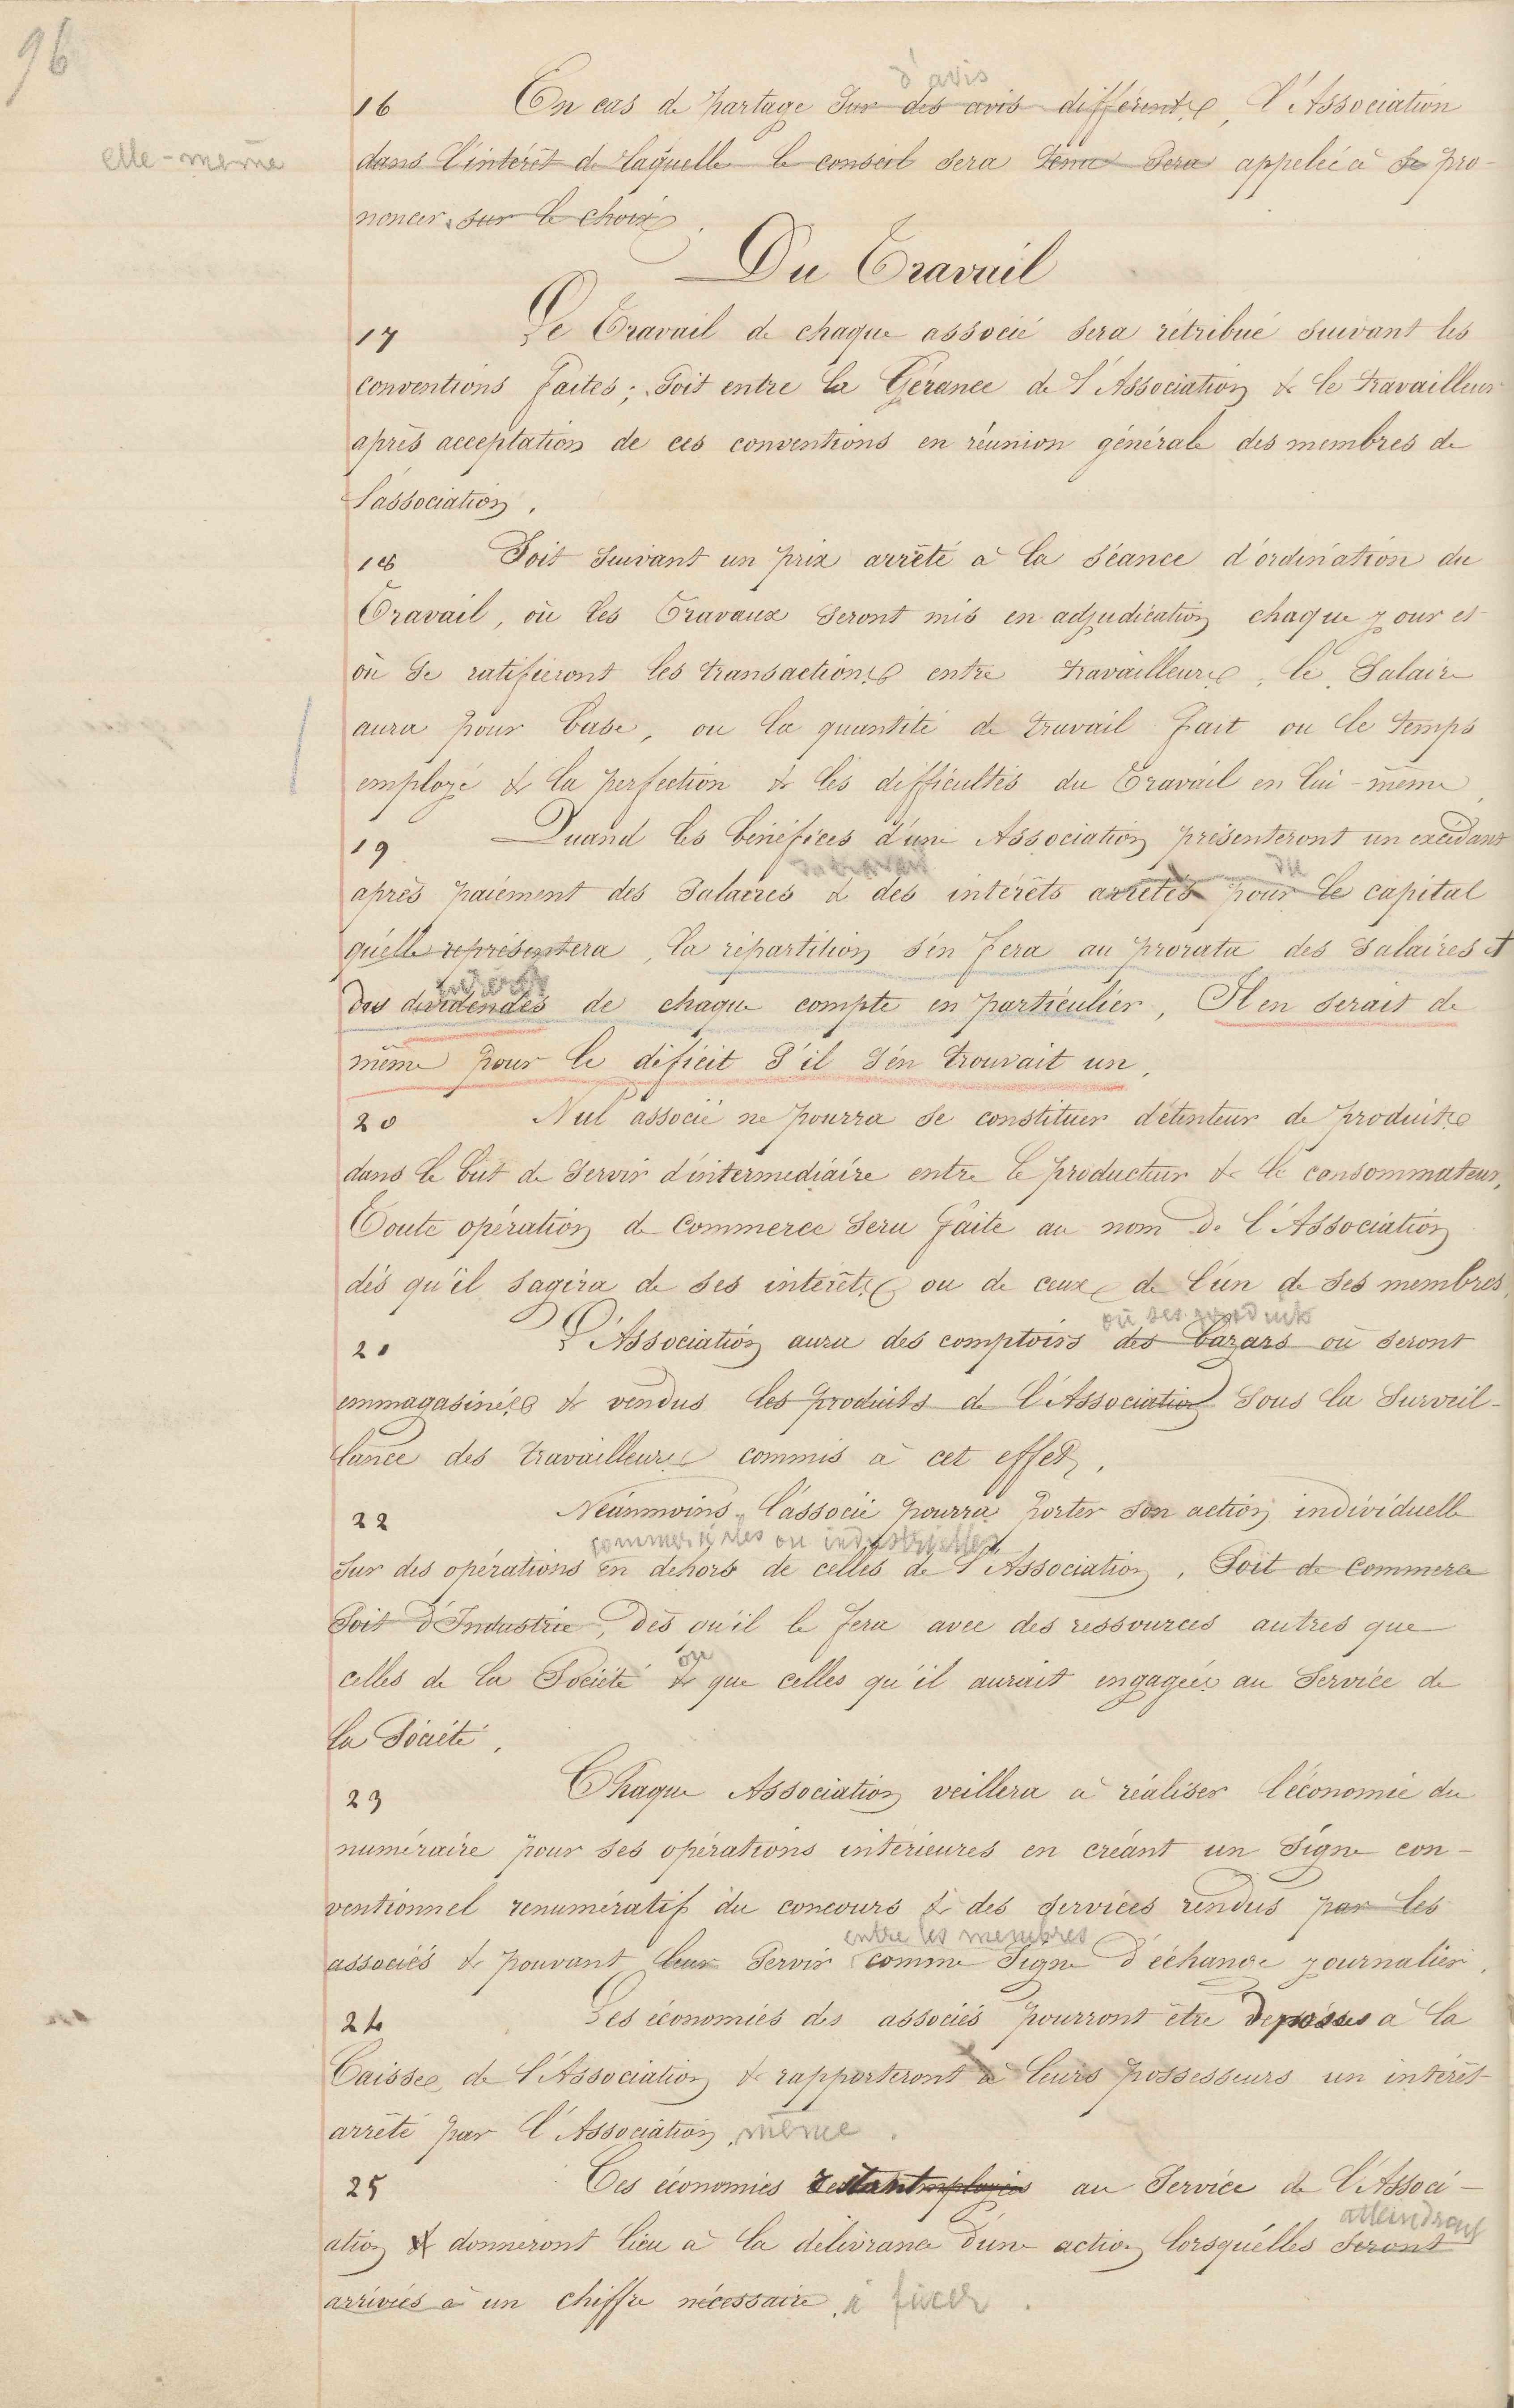 96
d'avis
16 En cas de partage sur des avis différents, l'Association
elle-même
dans l'intérêt de laquelle le conseil sera tenu sera appelée à se pro-
noncer sur le choix.
Du Travail
17 Le Travail de chaque associé sera rétribué suivant les
conventions faites; soit entre la Gérance de l'Association & le travailleur
après acceptation de ces conventions en réunion générale des membres de
l'association.
18 Soit suivant un prix arrêté à la séance d'ordination du
Travail, où les Travaux seront mis en adjudication chaque jour et
où se ratifieront les transactions entre travailleurs, le Salaire
aura pour base, ou la quantité de travail fait ou le temps
employé & la perfection & les difficultés du Travail en lui-même
19 Quand les bénéfices d'une Association présenteront un excédant
du
après paiement des Salaires & des intérêts arrêtés pour le capital
qu'elle représentera, la répartition s'en fera au prorata des Salaires et
intérêts
des dividendes de chaque compte en particulier, Il en serait de
même pour le déficit s'il s'en trouvait un.
20 Nul associé ne pourra se constituer détenteur de produits
dans le but de servir d'intermédiaire entre le producteur & le consommateur,
Toute opération de Commerce sera faite au nom de l'Association
dès qu'il s'agira de ses intérêts ou de ceux de l'un de ses membres,
où ses produits
21 L'Association aura des comptoirs des bazars où seront
emmagasinés & vendus les produits de l'Association sous la surveil-
lance des travailleurs commis à cet effet.
22 Néanmoins, l'associé pourra porter son action individuelle
commerciales ou industrielles
sur des opérations en dehors de celles de l'Association, Soit de Commerce
Soit d'Industrie, dès qu'il le fera avec des ressources autres que
ou
celles de la Société & que celles qu'il aurait engagées au Service de
la Société.
23 Chaque Association veillera à réaliser l'économie du
numéraire pour ses opérations intérieures en créant un Signe con-
ventionnel rénumératif du concours & des services rendus par les
entre les membres
associés & pouvant leur servir comme Signe d'échange journalier.
24 Les économies des associés pourront être déposées à la
Caisse de l'Association & rapporteront à leurs possesseurs un intérêt
arrêté par l'Association même.
25 Ces économies restant employées au Service de l'Associ-
atteindront
ation & donneront lieu à la délivrance d'une action lorsqu'elles seront
arrivées à un chiffre nécessaire à fixer.